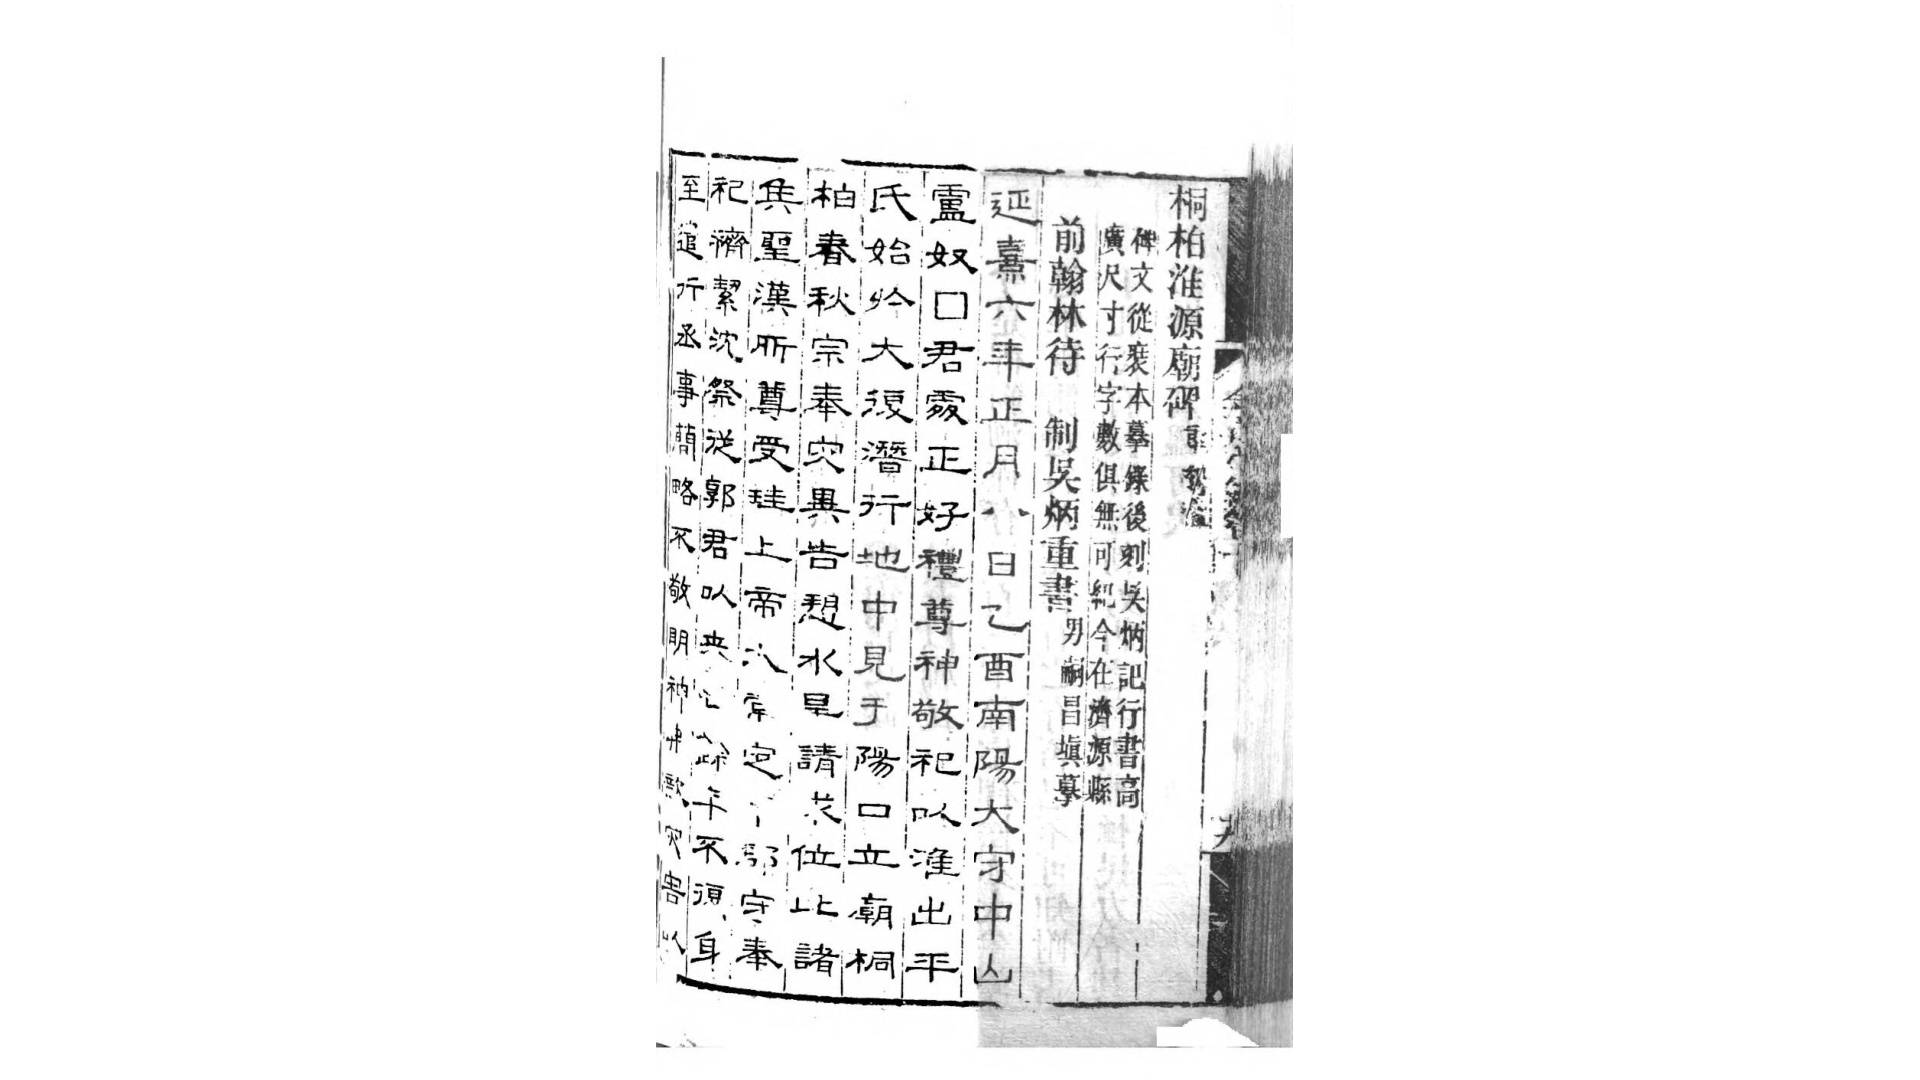 桐柏淮源廟碑
碑文從裝本摹錄後刻吳炳記行書高
廣尺寸行字數俱無可紀今在濟源縣
前翰林待 制吳炳重書 男嗣昌塡摹
延熹六年正月八日乙酉南陽大守中山
盧奴□君處正好禮尊神敬祀以淮出平
氏始於大復潛行地中見于陽口立廟桐
柏春秋宗奉灾異告愬水旱請求位比諸
矦聖漢所尊受珪上帝大常定 郡守奉
祀濟絜沈祭從郭君以來 餘年不復身
至遣行丞事蕳略不敬明神弗歆灾害以